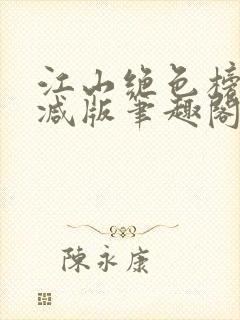 江山绝色榜
减版笔趣阁
陳永康